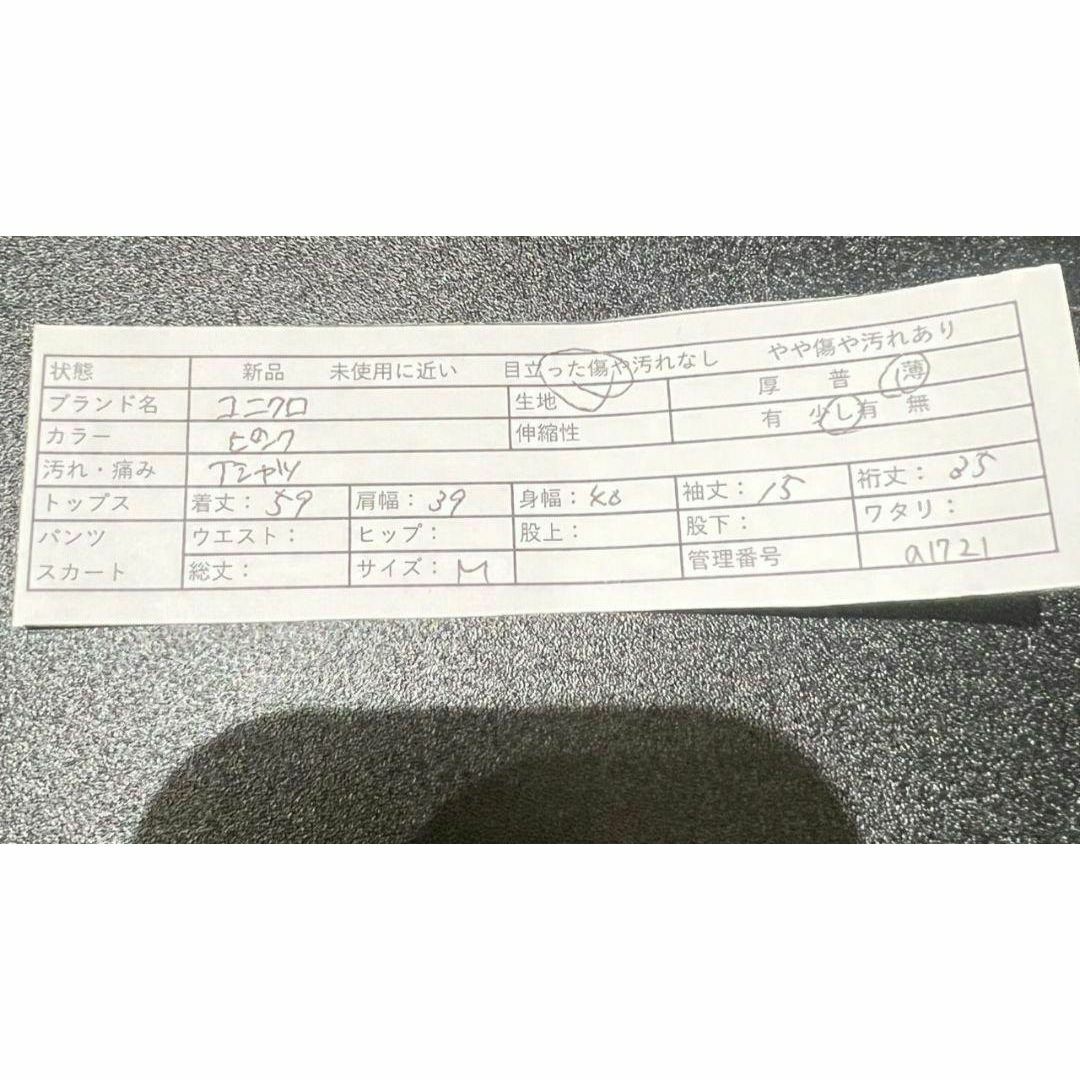 状態 新品 未使用に近い 目立った傷や汚れなし やや傷や汚れあり
ブランド名 ユニクロ 生地 厚 普 薄
カラー ピンク 伸縮性 有 少し有 無
汚れ・痛み Tシャツ
トップス 着丈: 59 肩幅: 39 身幅: 40 袖丈: 15 裄丈: 35
パンツ ウエスト: ヒップ: 股上: 股下: ワタリ:
スカート 総丈: サイズ: M 管理番号 a1721